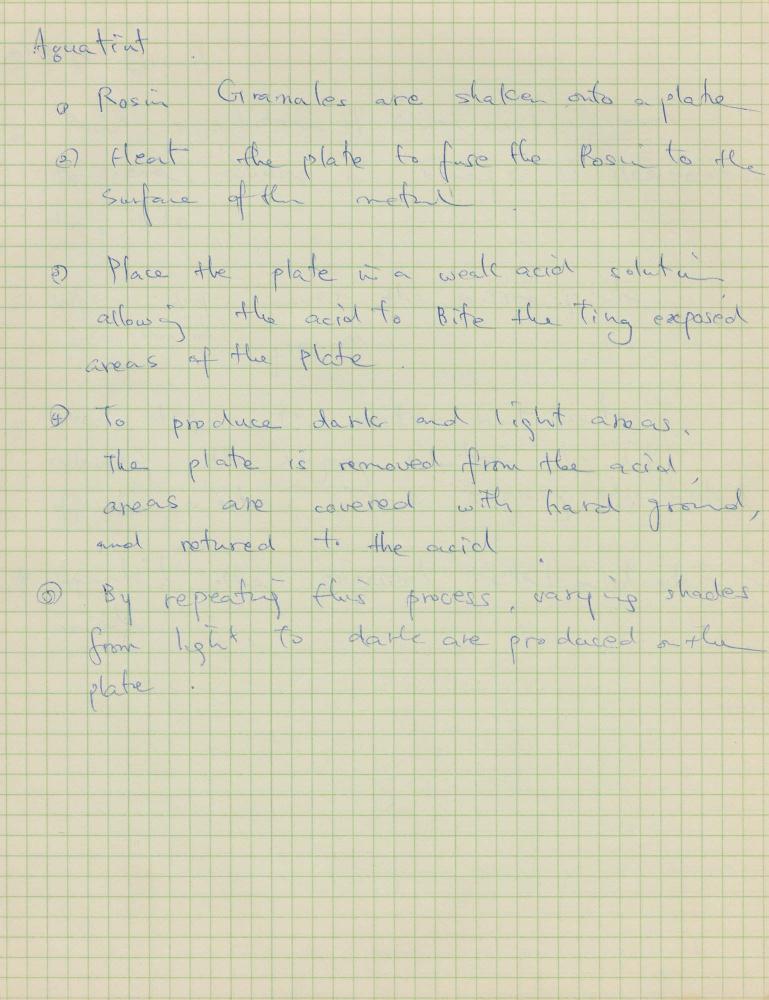 Aquatint.
① Rosin Granales are shaken onto a plate
② Heat the plate to fuse the Rosin to the
surface of the metal.
③ Place the plate in a weak acid solution
allowing the acid to Bite the Tiny exposed
areas of the plate.
④ To produce dark and light areas.
The plate is removed from the acid,
areas are covered with hard ground,
and retured to the acid.
⑤ By repeating this process, varying shades
from light to dark are produced on the
plate.